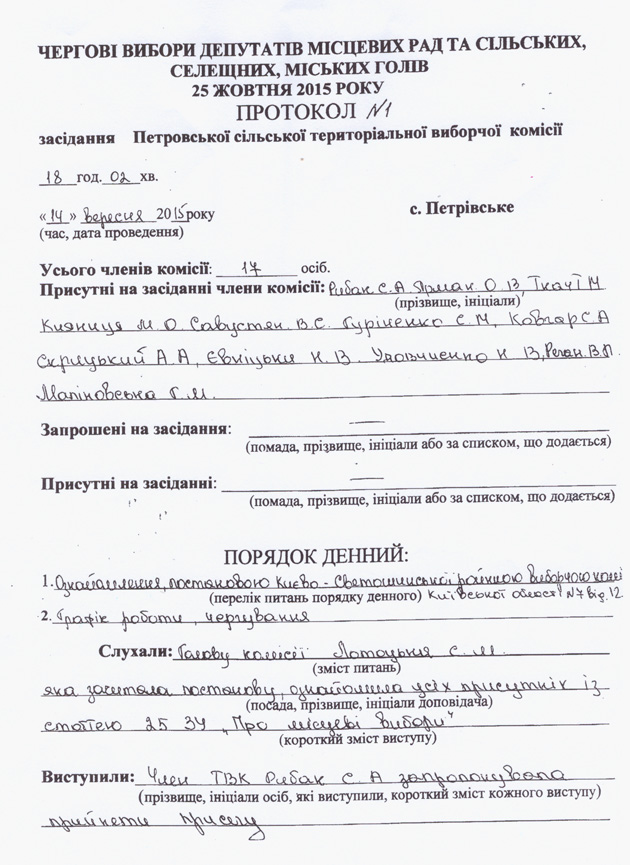 ЧЕРГОВІ ВИБОРИ ДЕПУТАТІВ МІСЦЕВИХ РАД ТА СІЛЬСЬКИХ,
СЕЛЕЩНИХ, МІСЬКИХ ГОЛІВ
25 ЖОВТНЯ 2015 РОКУ
ПРОТОКОЛ №1
засідання Петровської сільської територіальної виборчої комісії
18 год. 02 хв.
«14» вересня 2015 року
с. Петрівське
(час, дата проведення)
Усього членів комісії: 17 осіб.
Присутні на засіданні члени комісії: Рибак С.А Ярмак О В, Ткач Г М
(прізвище, ініціали)
Кияниця М О Савустян В.С. Гуріненко С М, Ковгар С А
Скрицький А А, Євніцьки Н. В. Удовиченко Н В, Реган В.П.
Маліновська Г.М.
Запрошені на засідання: —
(помада, прізвище, ініціали або за списком, що додається)
Присутні на засіданні: —
(помада, прізвище, ініціали або за списком, що додається)
ПОРЯДОК ДЕННИЙ:
1. Ознайомлення, постановою Києво-Святошинської районною виборчою
(перелік питань порядку денного) Київської області №7 від 12
2. Графік роботи, чергування
Слухали: Голову комісії С. М.
(зміст питань)
яка зачитала постанову, ознайомила усіх присутніх із
(посада, прізвище, ініціали доповідача)
статтею 25 ЗУ „Про місцеві вибори"
(короткий зміст виступу)
Виступили: Член ТВК Рибак С. А запропонувала
(прізвище, ініціали осіб, які виступили, короткий зміст кожного виступу)
прийнети присягу